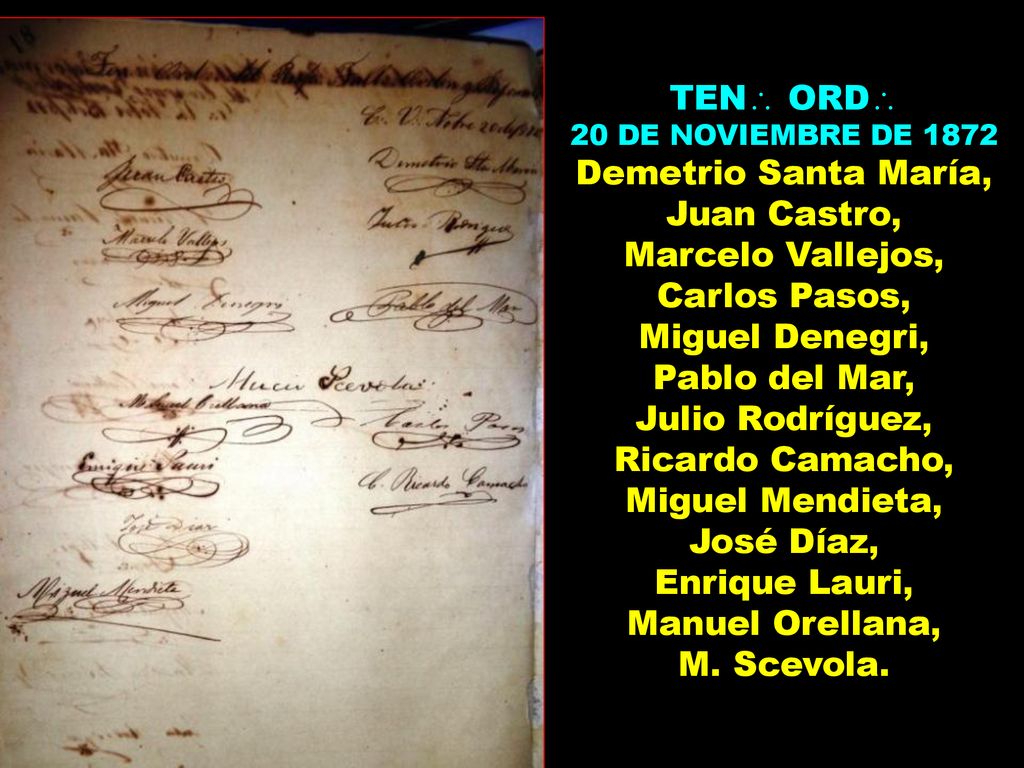 18
C. V. Nobre 20 de 1872
Juan Castro
Demetrio Sta. María
Marcelo Vallejos
Julio
Miguel Denegri
Pablo del Mar
Mucio Scevola
Manuel Orellana
Carlos Pasos
Enrique Lauri
C. Ricardo Camacho
José Díaz
Miguel Mendieta
TEN∴ ORD∴
20 DE NOVIEMBRE DE 1872
Demetrio Santa María,
Juan Castro,
Marcelo Vallejos,
Carlos Pasos,
Miguel Denegri,
Pablo del Mar,
Julio Rodríguez,
Ricardo Camacho,
Miguel Mendieta,
José Díaz,
Enrique Lauri,
Manuel Orellana,
M. Scevola.